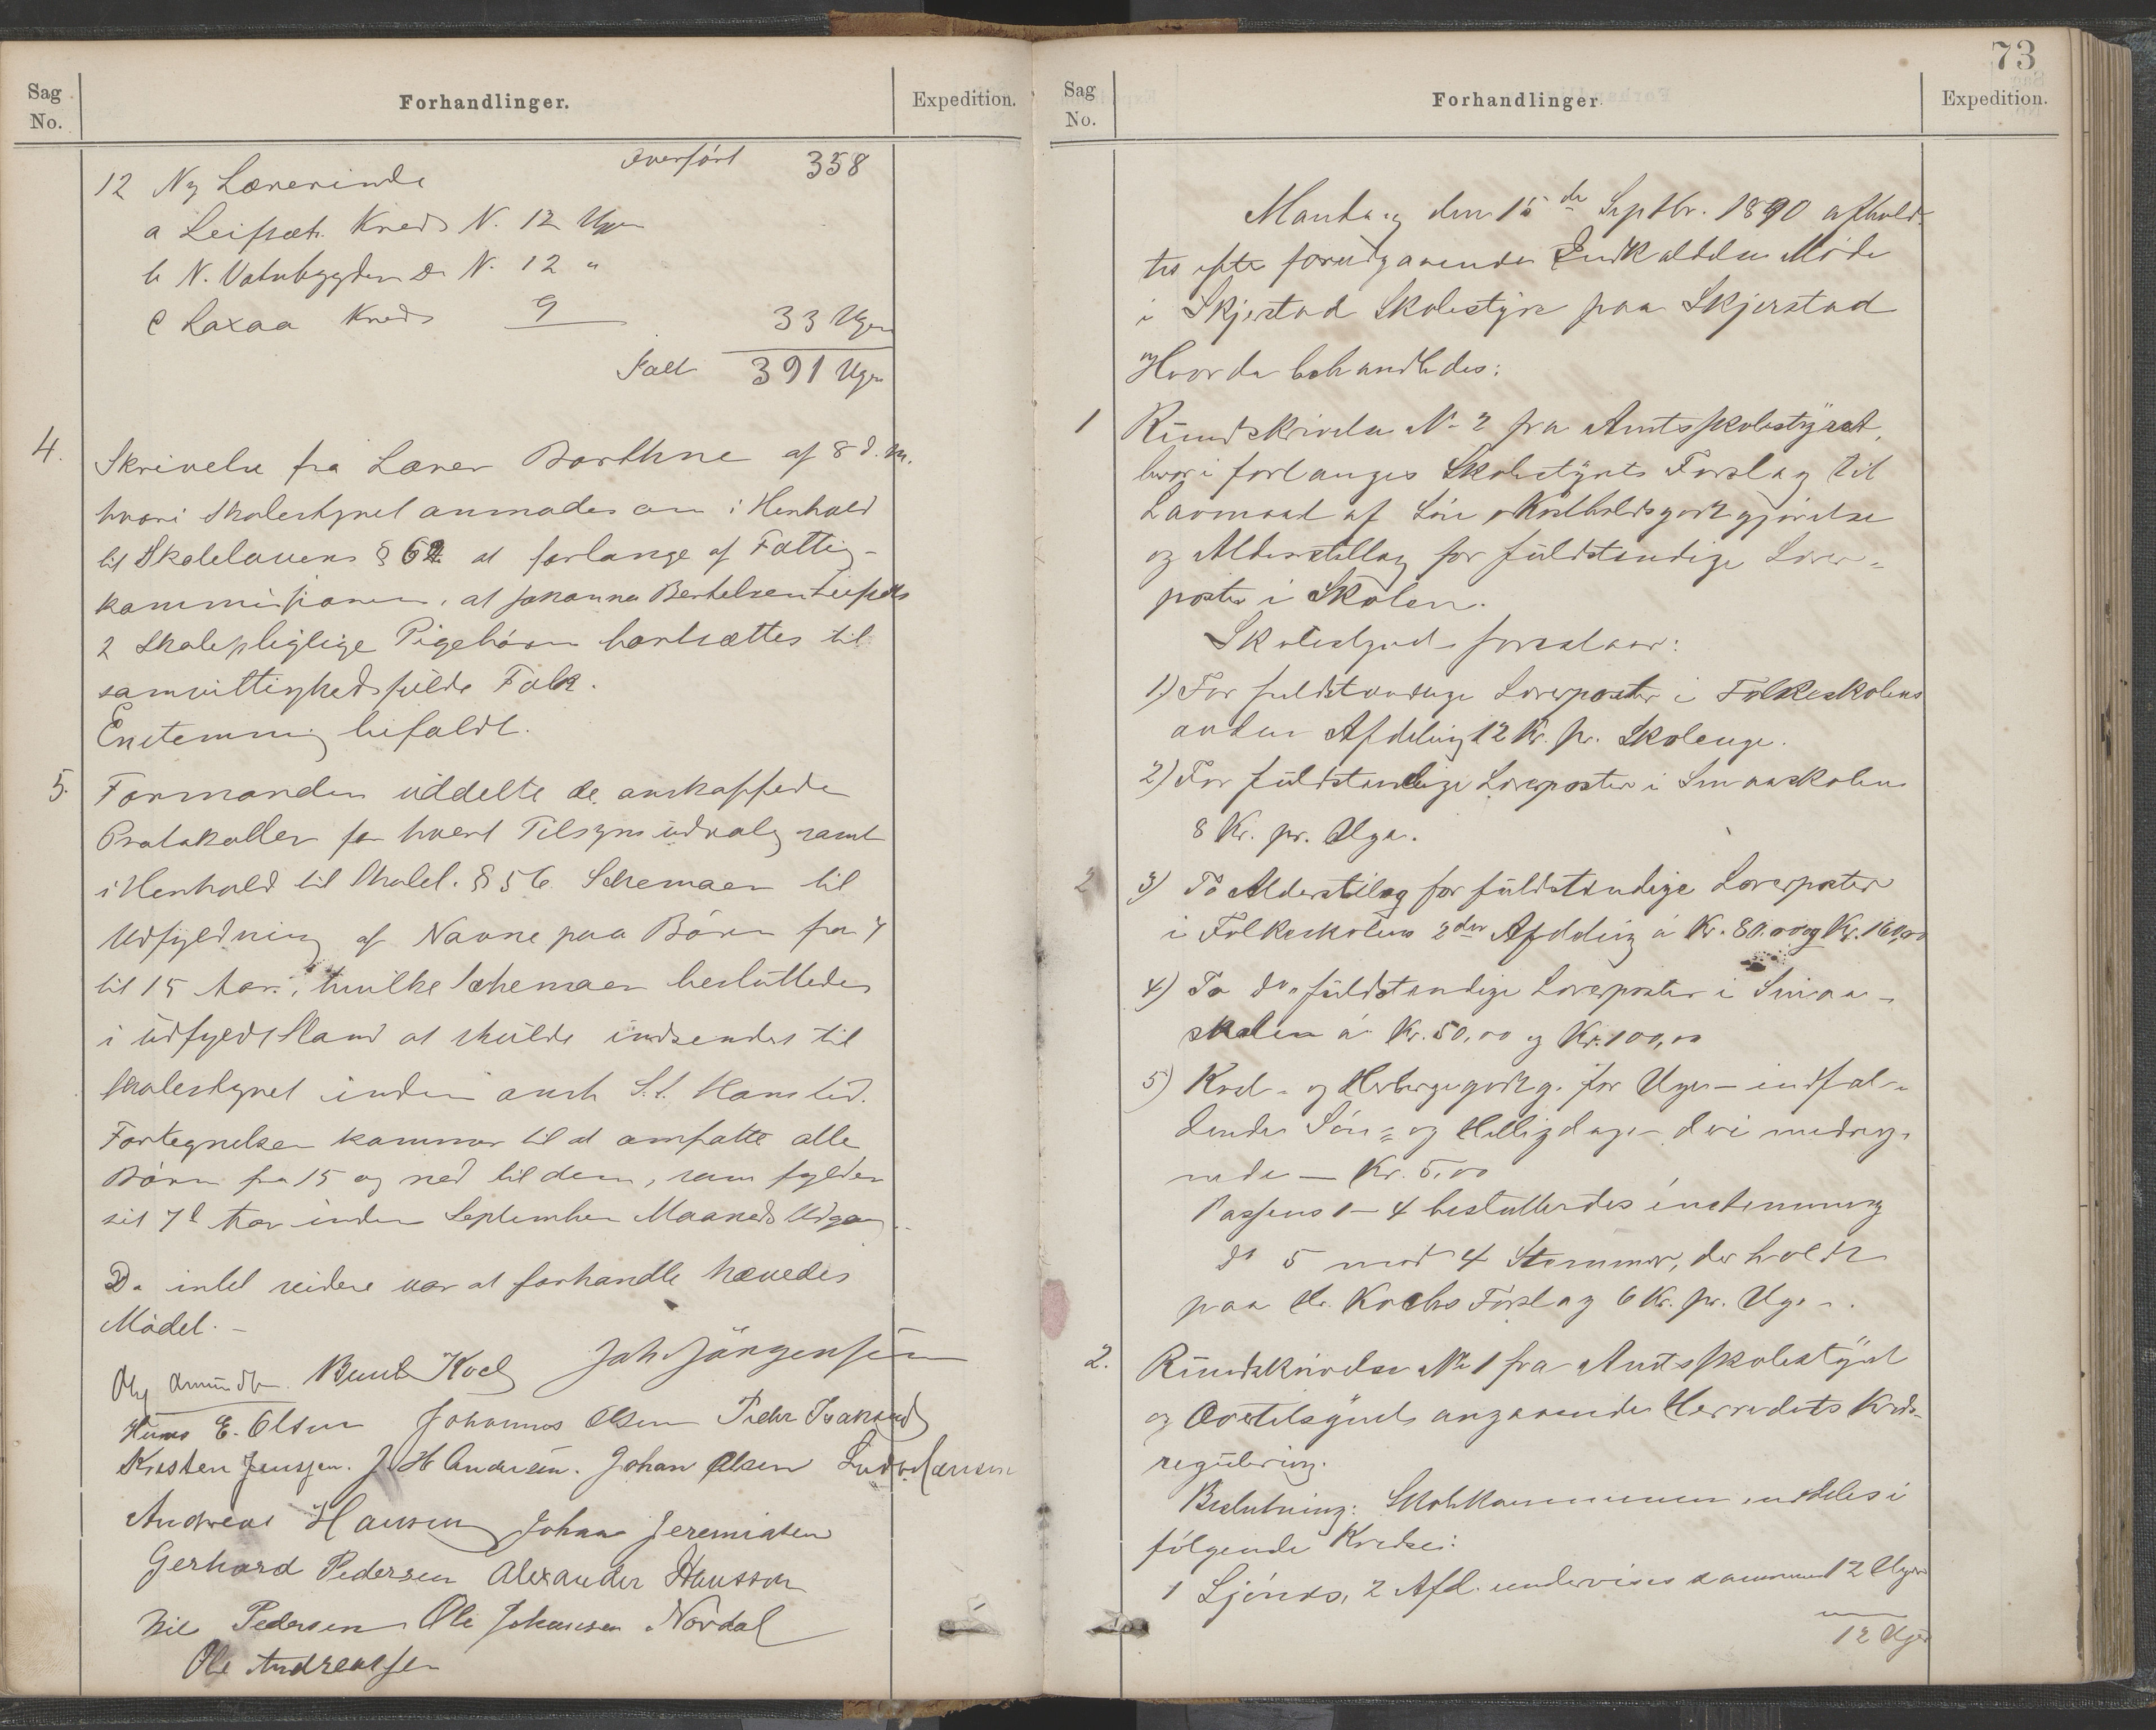 Sag No.
Forhandlinger.
Expedition.
Overført 358
12 Ny Lærerinde
a Leifsæt. Kreds N. 12 Uger
b N. Vatnbygden Do N. 12 "
c Laxaa Kreds 9
33 Uger
Ialt 391 Uger
4. Skrivelse fra Lærer Dorthne af 8 d. M.
hvori Skolestyret anmodes om i Henhold
til Skolelovens § 62 at forlange af Fattig-
kommissionen, at Johanna Bertelsen Leifsets
2 skolepligtige Pigebørn bortsættes til
samvittighedsfulde Folk.
Enstemmig bifaldt.
5. Formanden uddelte de anskaffede
Protokoller for hvert Tilsynsudvalg samt
i Henhold til Skolel. § 56 Schemaer til
Udfyldning af Navne paa Børn fra 7
til 15 Aar, hvilke Schemaer besluttedes
i udfyldt Stand at skulde indsendes til
Skolestyret inden anst. S.t. Hanstid.
Fortegnelsen kommer til at omfatte alle
Børn fra 15 og ned til dem, som fylder
sit 7de Aar inden September Maaneds Udgang.
Da intet videre var at forhandle hævedes
Mødet. -
Bernt Koch Joh Jörgensen
Hans E. Olsen Johannes Olsen Peder Isaksen
Kristen Jenssen. J. H Andersen. Johan Olsen Ludv. Hansen
Andreas Hansen Johan Jeremiasen
Gerhard Pedersen Alexander Hansson
Nils Pedersen Ole Johansen Nordal
Ole Andreassen
73
Sag No.
Forhandlinger
Expedition.
Mandag den 15de Septbr. 1890 afhold-
tes efter forudgaaende Indkaldelse Møde
i Skjerstad Skolestyre paa Skjerstad
Hvor da behandledes:
1 Rundskrivelse No 2 fra Amtsskolestyret,
hvori forlanges Skolestyrets Forslag til
Lavmaal af Løn, Kostholdsgodtgjørelse
og Alderstillæg for fuldstændige Lærer-
poster i Skolen.
Skolestyret foreslaar:
1) For fuldstændige Lærerposter i Folkeskolens
anden Afdeling 12 Kr. pr. Skoleuge.
2) For fuldstændige Lærerposter i Smaaskolen
8 Kr. pr. Uge.
2 3) To Alderstillæg for fuldstændige Lærerposter
i Folkeskolens 2den Afdeling á Kr. 80.00 og Kr. 160,00
4) To do fuldstændige Lærerposter i Smaa-
skolen á Kr. 50,00 og Kr. 100,00
5) Kost- og Herbergegodtg. for Uge - indfal-
dende Søn- og Helligdage deri medreg-
nede — Kr. 5,00
Passus 1-4 besluttedes enstemmig
do 5 mod 4 Stemmer, der holdt
paa Hr. Kochs Forslag 6 Kr. pr. Uge.
2. Rundskrivelse No 1 fra Amtsskolestyret
og Overtilsynet angaaende Herredets Kreds-
regulering.
Beslutning: Skolekommunen inddeles i
følgende Kredse:
1 Ljønes, 2 Afd. undervises sammen 12 Uger
12 Uger